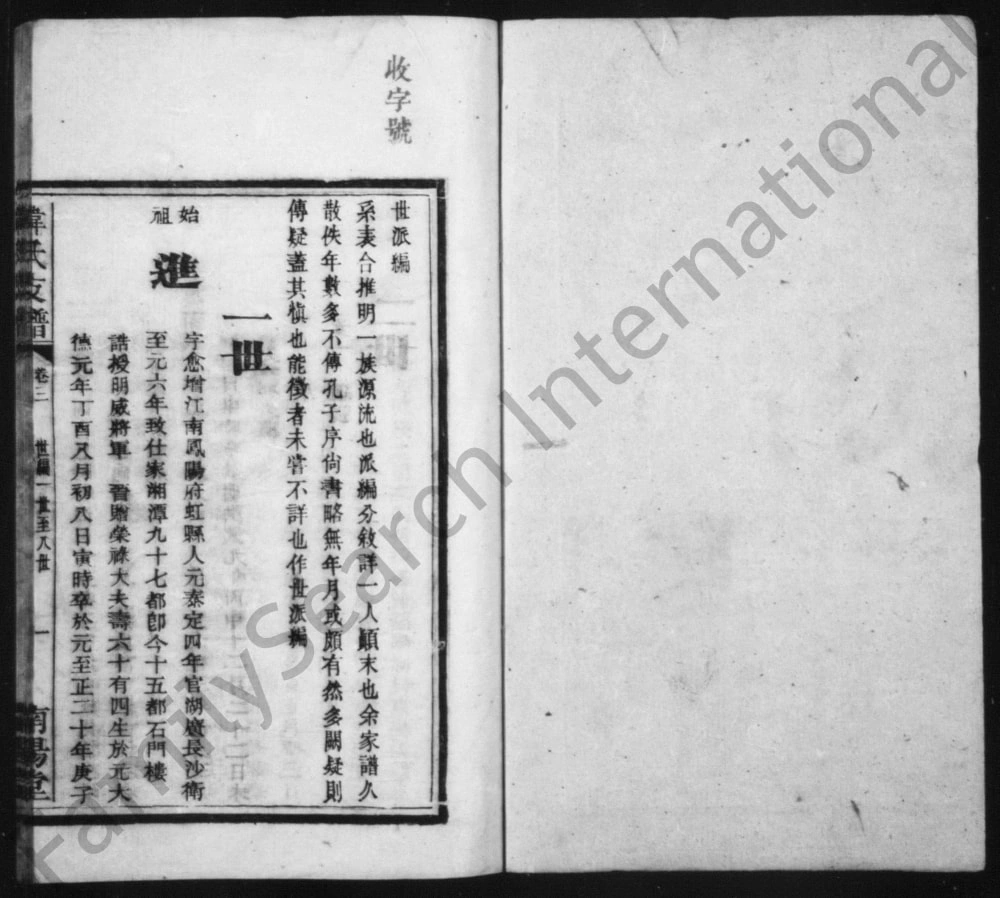 收字號
世派編
系表合推明一族源流也派編分敘詳一人顛末也余家譜久
散佚年數多不傳孔子序尙書略無年月或頗有然多闕疑則
傳疑蓋其愼也能徵者未嘗不詳也作世派編
一世
始祖
進
字愈增江南鳳陽府虹縣人元泰定四年官湖廣長沙衛
至元六年致仕家湘潭九十七都卽今十五都石門樓
誥授明威將軍 晉贈榮祿大夫壽六十有四生於元大
德元年丁酉八月初八日寅時卒於元至正二十年庚子
韓氏支譜
卷三
世編一世至八世
一
南陽堂
FamilySearch International